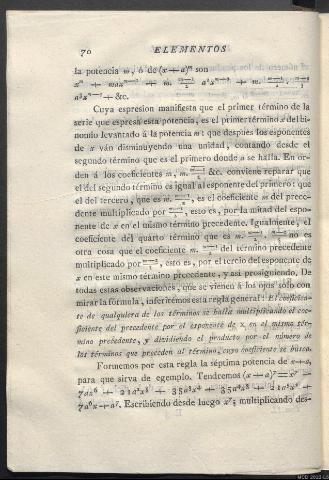 70 ELEMENTOS
la potencia m, ó de (x+a)ᵐ son
xᵐ + maxᵐ⁻¹ + m. m-1/2 a²xᵐ⁻² + m. m-1/2 . m-2/3
a³xᵐ⁻³ + &c.
Cuya expresion manifiesta que el primer término de la
serie que expresa esta potencia, es el primer término x del bi-
nomio levantado á la potencia m: que despues los exponentes
de x ván disminuyendo una unidad, contando desde el
segundo término que es el primero donde a se halla. En or-
den á los coeficientes m, m. m-1/2 &c. conviene reparar que
el del segundo término es igual al exponente del primero: que
el del tercero, que es m. m-1/2, es el coeficiente m del prece-
dente multiplicado por m-1/2, esto es, por la mitad del expo-
nente de x en el mismo término precedente. Igualmente, el
coeficiente del quarto término que es m. m-1/2 . m-2/3 no es
otra cosa que el coeficiente m. m-1/2 del término precedente
multiplicado por m-2/3, esto es, por el tercio del exponente de
x en este mismo término precedente, y asi prosiguiendo. De
todas estas observaciones, que se vienen á los ojos solo con
mirar la formula, inferirémos esta regla general: El coeficien-
te de qualquiera de los términos se halla multiplicando el coe-
ficiente del precedente por el exponente de x en el mismo tér-
mino precedente, y dividiendo el producto por el número de
los términos que preceden al término, cuyo coeficiente se busca.
Formemos por esta regla la séptima potencia de x+a,
para que sirva de egemplo. Tendremos (x+a)⁷ = x⁷ +
7ax⁶ + 21a²x⁵ + 35a³x⁴ + 35a⁴x³ + 21a⁵x² +
7a⁶x + a⁷. Escribiendo desde luego x⁷; multiplicando des-